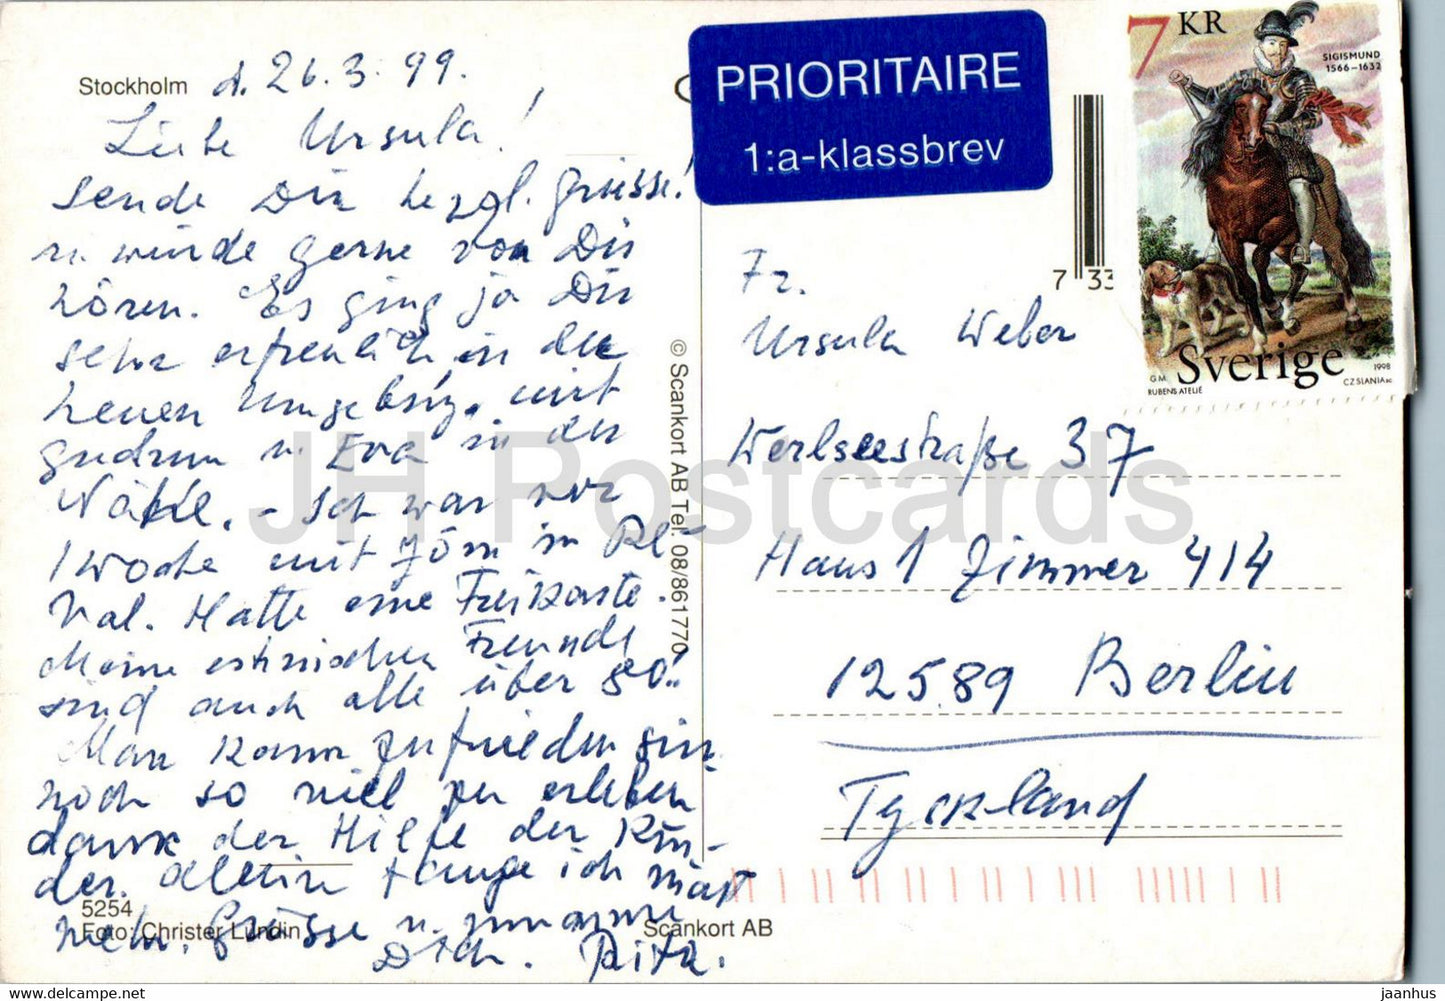 Stockholm d. 26.3.99.
Liebe Ursula!
sende Dir herzgl. Grüsse!
u. würde gerne von Dir
hören. Es ging ja Dir
sehr erfreulich in der
neuen Umgebung, mit
Gudrun u. Eva in der
Nähe. - Ich war vor
1 Woche mit Jörn in Re-
val. Hatte eine Freikarte.
Meine estnischen Freunde
sind auch alle über 80!!
Man kann zufrieden sein
noch so viel zu erleben
dank der Hilfe der Kin-
der. Allein tauge ich nicht
mehr. Grüsse u. umarme
Dich. Rita.
5254
Foto: Christer Lundin
Scankort AB
© Scankort AB Tel. 08/861770
PRIORITAIRE
1:a-klassbrev
7 33
7 KR
SIGISMUND
1566-1632
Sverige
1998
G.M.
RUBENS ATELIÉ
CZ SLANIA sc
Fr.
Ursula Weber
Werlseestraße 37
Haus 1 Zimmer 414
12589 Berlin
Tyskland
JH Postcards
jaanhus-postcards.com
jaanhus